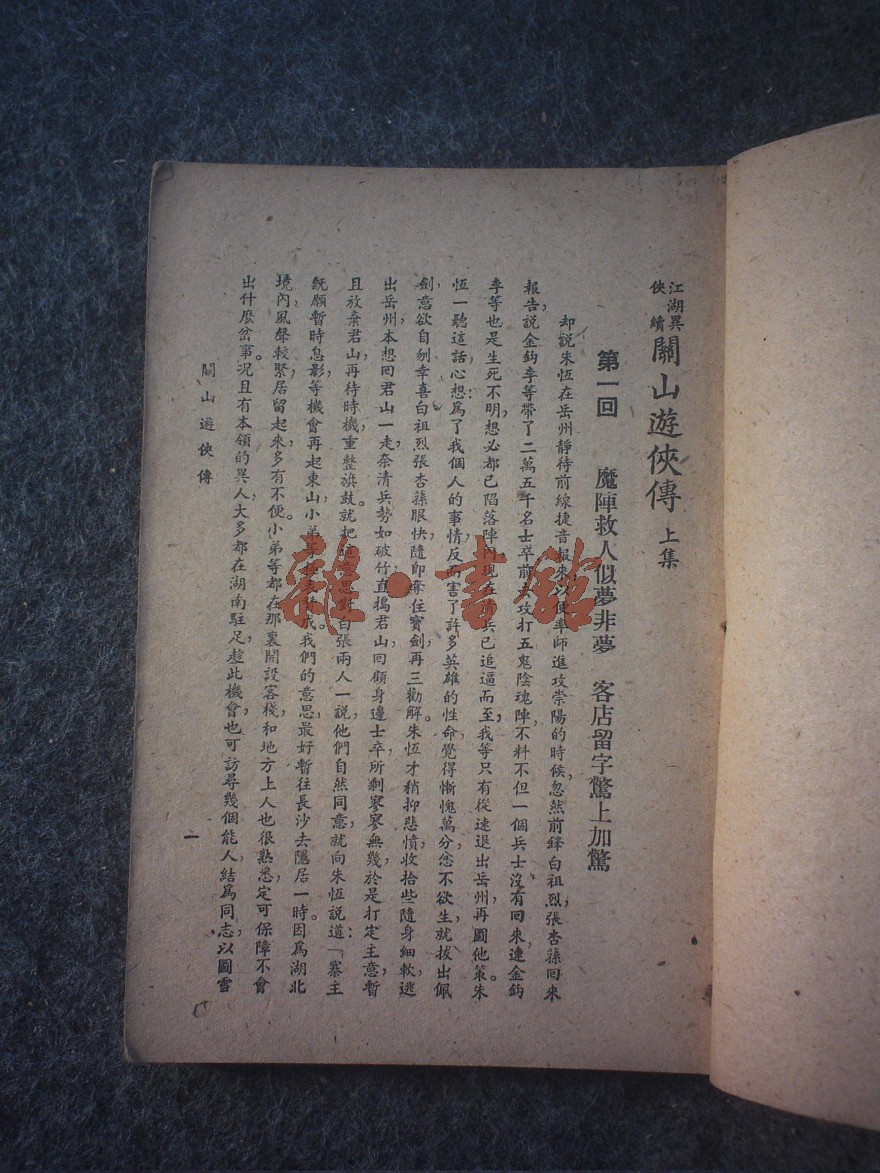 江湖異
俠續
關山遊俠傳 上集
第一回 魔陣救人似夢非夢 客店留字驚上加驚
却說朱恆在岳州靜待前線捷音報來以便率師進攻崇陽的時候忽然前鋒白祖烈張杏蓀回來
報告說金鈎李等帶了二萬五千名士卒前去攻打五鬼陰魂陣不料不但一個兵士沒有回來連金鈎
李等也是生死不明想必都已陷落陣內現在兵已追逼而至我等只有從速退出岳州再圖他策。朱
恆一聽這話心想：爲了我個人的事情反而害了許多英雄的性命覺得慚愧萬分忿不欲生就拔出佩
劍意欲自刎幸喜白祖烈張杏蓀眼快隨卽奪住寶劍再三勸解。朱恆才稍抑悲憤收拾些隨身細軟逃
出岳州本想回君山一走奈清兵勢如破竹直搗君山回顧身邊士卒所剩寥寥無幾於是打定主意暫
且放棄君山再待時機重整旗鼓。就把這意思對白張兩人一說他們自然同意就向朱恆說道：「寨主
旣願暫時息影等機會再起東山小弟等成我們的意思最好暫往長沙去隱居一時。因爲湖北
境內風聲較緊居留起來多有不便。小弟等都在那裏開設客棧和地方上人也很熟悉定可保障不會
出什麼岔事。況且有本領的異人大多都在湖南駐足趁此機會也可訪尋幾個能人結爲同志以圖雪
關山遊俠傳
一
雜·書館